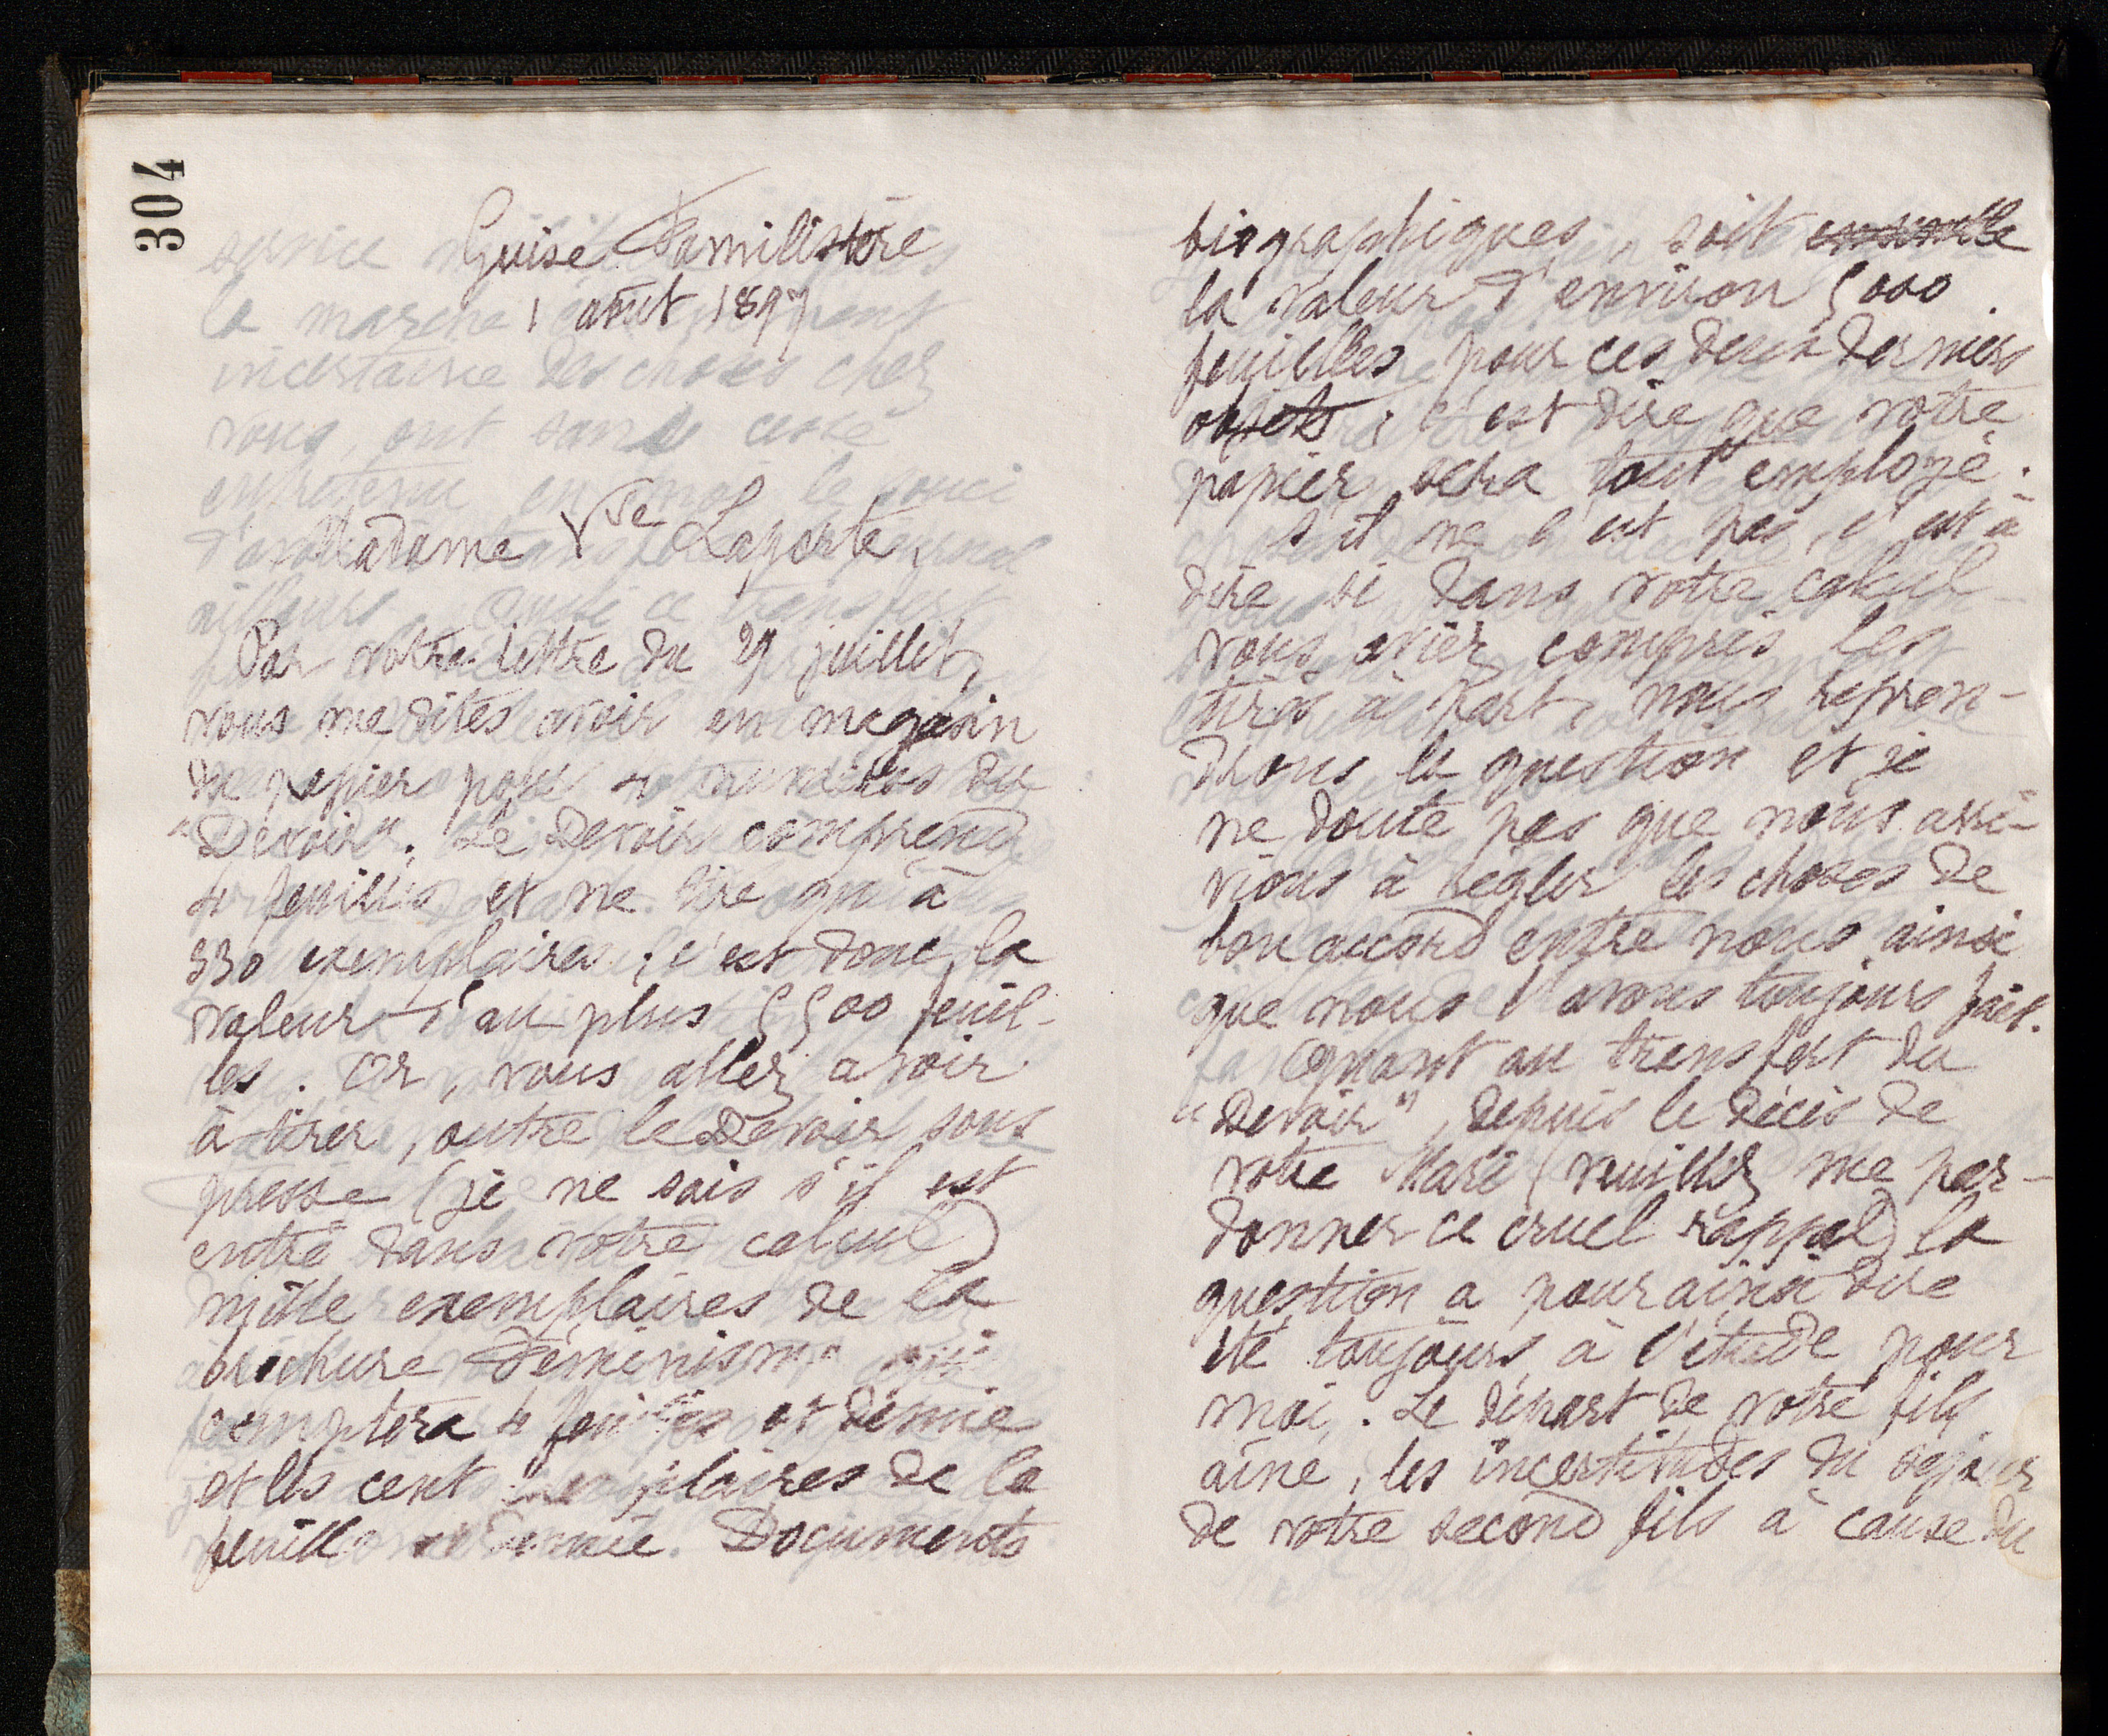 304
Guise Familistère
1 août 1897
Madame Vve Laporte,
Par votre lettre du 29 juillet,
vous me dites avoir en magasin
du papier pour 4 numéros du
"Devoir". Le Devoir comprend
4 feuilles et ne tire qu'à
330 exemplaires ; c'est donc la
valeur d'au plus 5500 feuil-
les. Or, vous allez avoir
à tirer, outre le Devoir sous
presse (je ne sais s'il est
entré dans votre calcul)
mille exemplaires de la
brochure Féminisme qui
comptera 4 feuilles et demie
et les cent exemplaires de la
feuille et demie. Documents
biographiques, soit ensemble
la valeur d'environ 5000
feuilles pour ces deux derniers
objets ; c'est dire que votre
papier sera tout employé.
S'il ne l'est pas, c'est à
dire si dans votre calcul
vous aviez compris les
tirés à part, nous repren-
drons la question et je
ne doute pas que nous arri-
vions à régler les choses de
bon accord entre nous ainsi
que nous l'avons toujours fait.
Quant au transfert du
"Devoir", depuis le décès de
votre Mari (veuillez me par-
donner ce cruel rappel) la
question a pour ainsi dire
été toujours à l'étude pour
moi. Le départ de votre fils
aîné, les incertitudes du séjour
de votre second fils à cause du